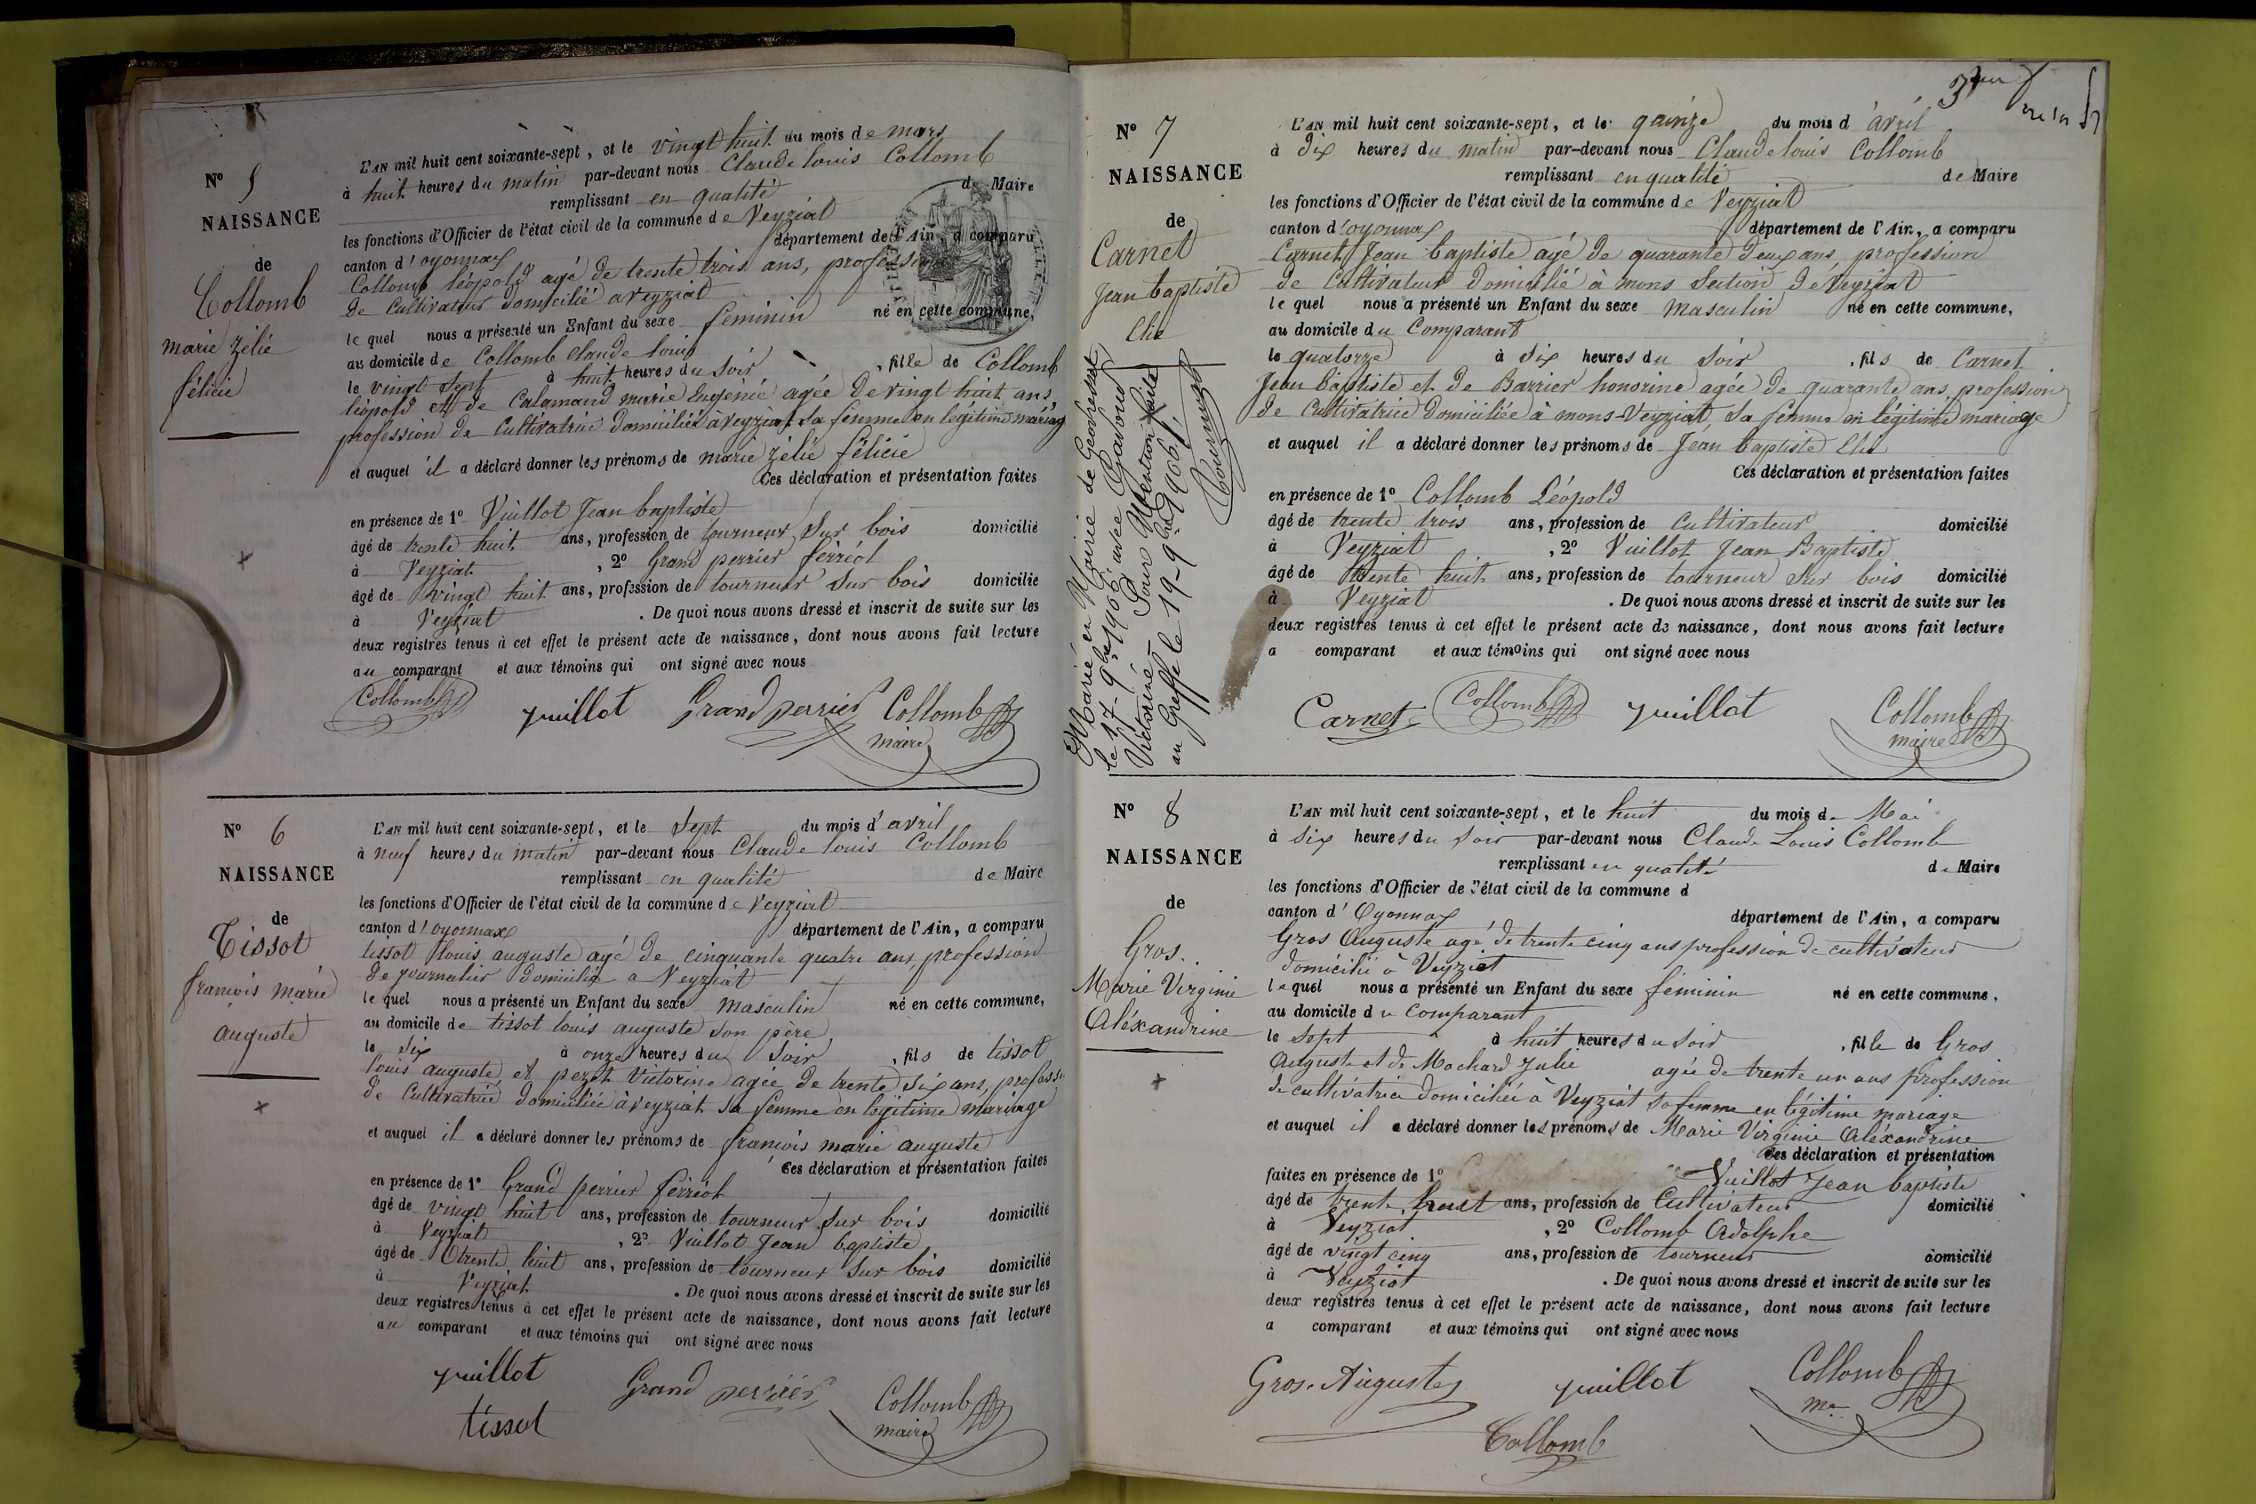 N° 5
NAISSANCE
de
Collomb
marie Zélie
félicie
L'AN mil huit cent soixante-sept, et le vingt huit du mois de mars
à huit heures du matin par-devant nous Claude louis Collomb
remplissant en qualité de Maire
les fonctions d'Officier de l'état civil de la commune de Veyziat
canton d'oyonnax département de l'Ain a comparu
Collomb léopold agé de trente trois ans, profession
de Cultivateur domicilié a veyziat
le quel nous a présenté un Enfant du sexe féminin né en cette commune,
au domicile de Collomb Claude louis
le vingt sept à huit heures du soir , fille de Collomb
léopold et de Calamand marie Eugénie agée de vingt huit ans,
profession de Cultivatrice domiciliée à veyziat sa femme en légitime mariage
et auquel il a déclaré donner les prénoms de marie Zélie félicie
Ces déclaration et présentation faites
en présence de 1° Vuillot Jean baptiste
âgé de trente huit ans, profession de tourneur sur bois domicilié
à Veyziat , 2° Grand perrier ferréol
âgé de vingt huit ans, profession de tourneur sur bois domicilié
à Veyziat . De quoi nous avons dressé et inscrit de suite sur les
deux registres tenus à cet effet le présent acte de naissance, dont nous avons fait lecture
au comparant et aux témoins qui ont signé avec nous
Collomb vuillot Grand perrier Collomb
maire
N° 6
NAISSANCE
de
Tissot
francois marie
auguste
L'AN mil huit cent soixante-sept, et le sept du mois d'avril
à neuf heures du matin par-devant nous Claude louis Collomb
remplissant en qualité de Maire
les fonctions d'Officier de l'état civil de la commune de Veyziat
canton d'oyonnax département de l'Ain, a comparu
tissot louis auguste agé de cinquante quatre ans, profession
de journalier domicilié a Veyziat
le quel nous a présenté un Enfant du sexe masculin né en cette commune,
au domicile de tissot louis auguste son père
le six à onze heures du soir , fils de tissot
louis auguste et pezet Victorine agée de trente six ans, profession
de Cultivatrice domiciliée à veyziat sa femme en légitime mariage
et auquel il a déclaré donner les prénoms de francois marie auguste
Ces déclaration et présentation faites
en présence de 1° Grand perrier ferréol
âgé de vingt huit ans, profession de tourneur sur bois domicilié
à Veyziat , 2° Vuillot Jean baptiste
âgé de trente huit ans, profession de tourneur sur bois domicilié
à Veyziat . De quoi nous avons dressé et inscrit de suite sur les
deux registres tenus à cet effet le présent acte de naissance, dont nous avons fait lecture
au comparant et aux témoins qui ont signé avec nous
vuillot Grand perrier Collomb
tissot maire
N° 7
NAISSANCE
de
Carnet
Jean baptiste
Elie
Marié en Mairie de Géovresset
le 17 - 9bre 1906, avec
Victorine - Pour Mention faite
au Greffe le 19 - 9bre 1906
L'AN mil huit cent soixante-sept, et le quinze du mois d'avril
à dix heures du matin par-devant nous Claude louis Collomb
remplissant en qualité de Maire
les fonctions d'Officier de l'état civil de la commune de Veyziat
canton d'oyonnax département de l'Ain, a comparu
Carnet Jean baptiste agé de quarante deux ans, profession
de Cultivateur domicilié à mons Section de Veyziat
le quel nous a présenté un Enfant du sexe masculin né en cette commune,
au domicile du Comparant
le quatorze à six heures du soir , fils de Carnet
Jean baptiste et de Barrier honorine agée de quarante ans, profession
de Cultivatrice domiciliée à mons-Veyziat, sa femme en légitime mariage
et auquel il a déclaré donner les prénoms de Jean baptiste Elie
Ces déclaration et présentation faites
en présence de 1° Collomb Léopold
âgé de trente trois ans, profession de Cultivateur domicilié
à Veyziat , 2° Vuillot Jean Baptiste
âgé de trente huit ans, profession de tourneur sur bois domicilié
à Veyziat . De quoi nous avons dressé et inscrit de suite sur les
deux registres tenus à cet effet le présent acte de naissance, dont nous avons fait lecture
a comparant et aux témoins qui ont signé avec nous
Carnet Collomb vuillot Collomb
maire
N° 8
NAISSANCE
de
Gros.
Marie Virginie
Aléxandrine
L'AN mil huit cent soixante-sept, et le huit du mois de Mai
à six heures du soir par-devant nous Claude Louis Collomb
remplissant en qualité de Maire
les fonctions d'Officier de l'état civil de la commune d
canton d'Oyonnax département de l'Ain, a comparu
Gros Auguste agé de trente cinq ans profession de cultivateur
domicilié à Veyziat
le quel nous a présenté un Enfant du sexe féminin né en cette commune,
au domicile du Comparant
le sept à huit heures du soir , fille de Gros
Auguste et de Mochard Julie agée de trente un ans profession
de cultivatrice domiciliée à Veyziat sa femme en légitime mariage
et auquel il a déclaré donner les prénoms de Marie Virginie Aléxandrine
Ces déclaration et présentation
faites en présence de 1° Vuillot Jean baptiste
âgé de trente huit ans, profession de Cultivateur domicilié
à Veyziat , 2° Collomb Adolphe
âgé de vingt cinq ans, profession de tourneur domicilié
à Veyziat . De quoi nous avons dressé et inscrit de suite sur les
deux registres tenus à cet effet le présent acte de naissance, dont nous avons fait lecture
a comparant et aux témoins qui ont signé avec nous
Gros. Auguste vuillot Collomb
Collomb